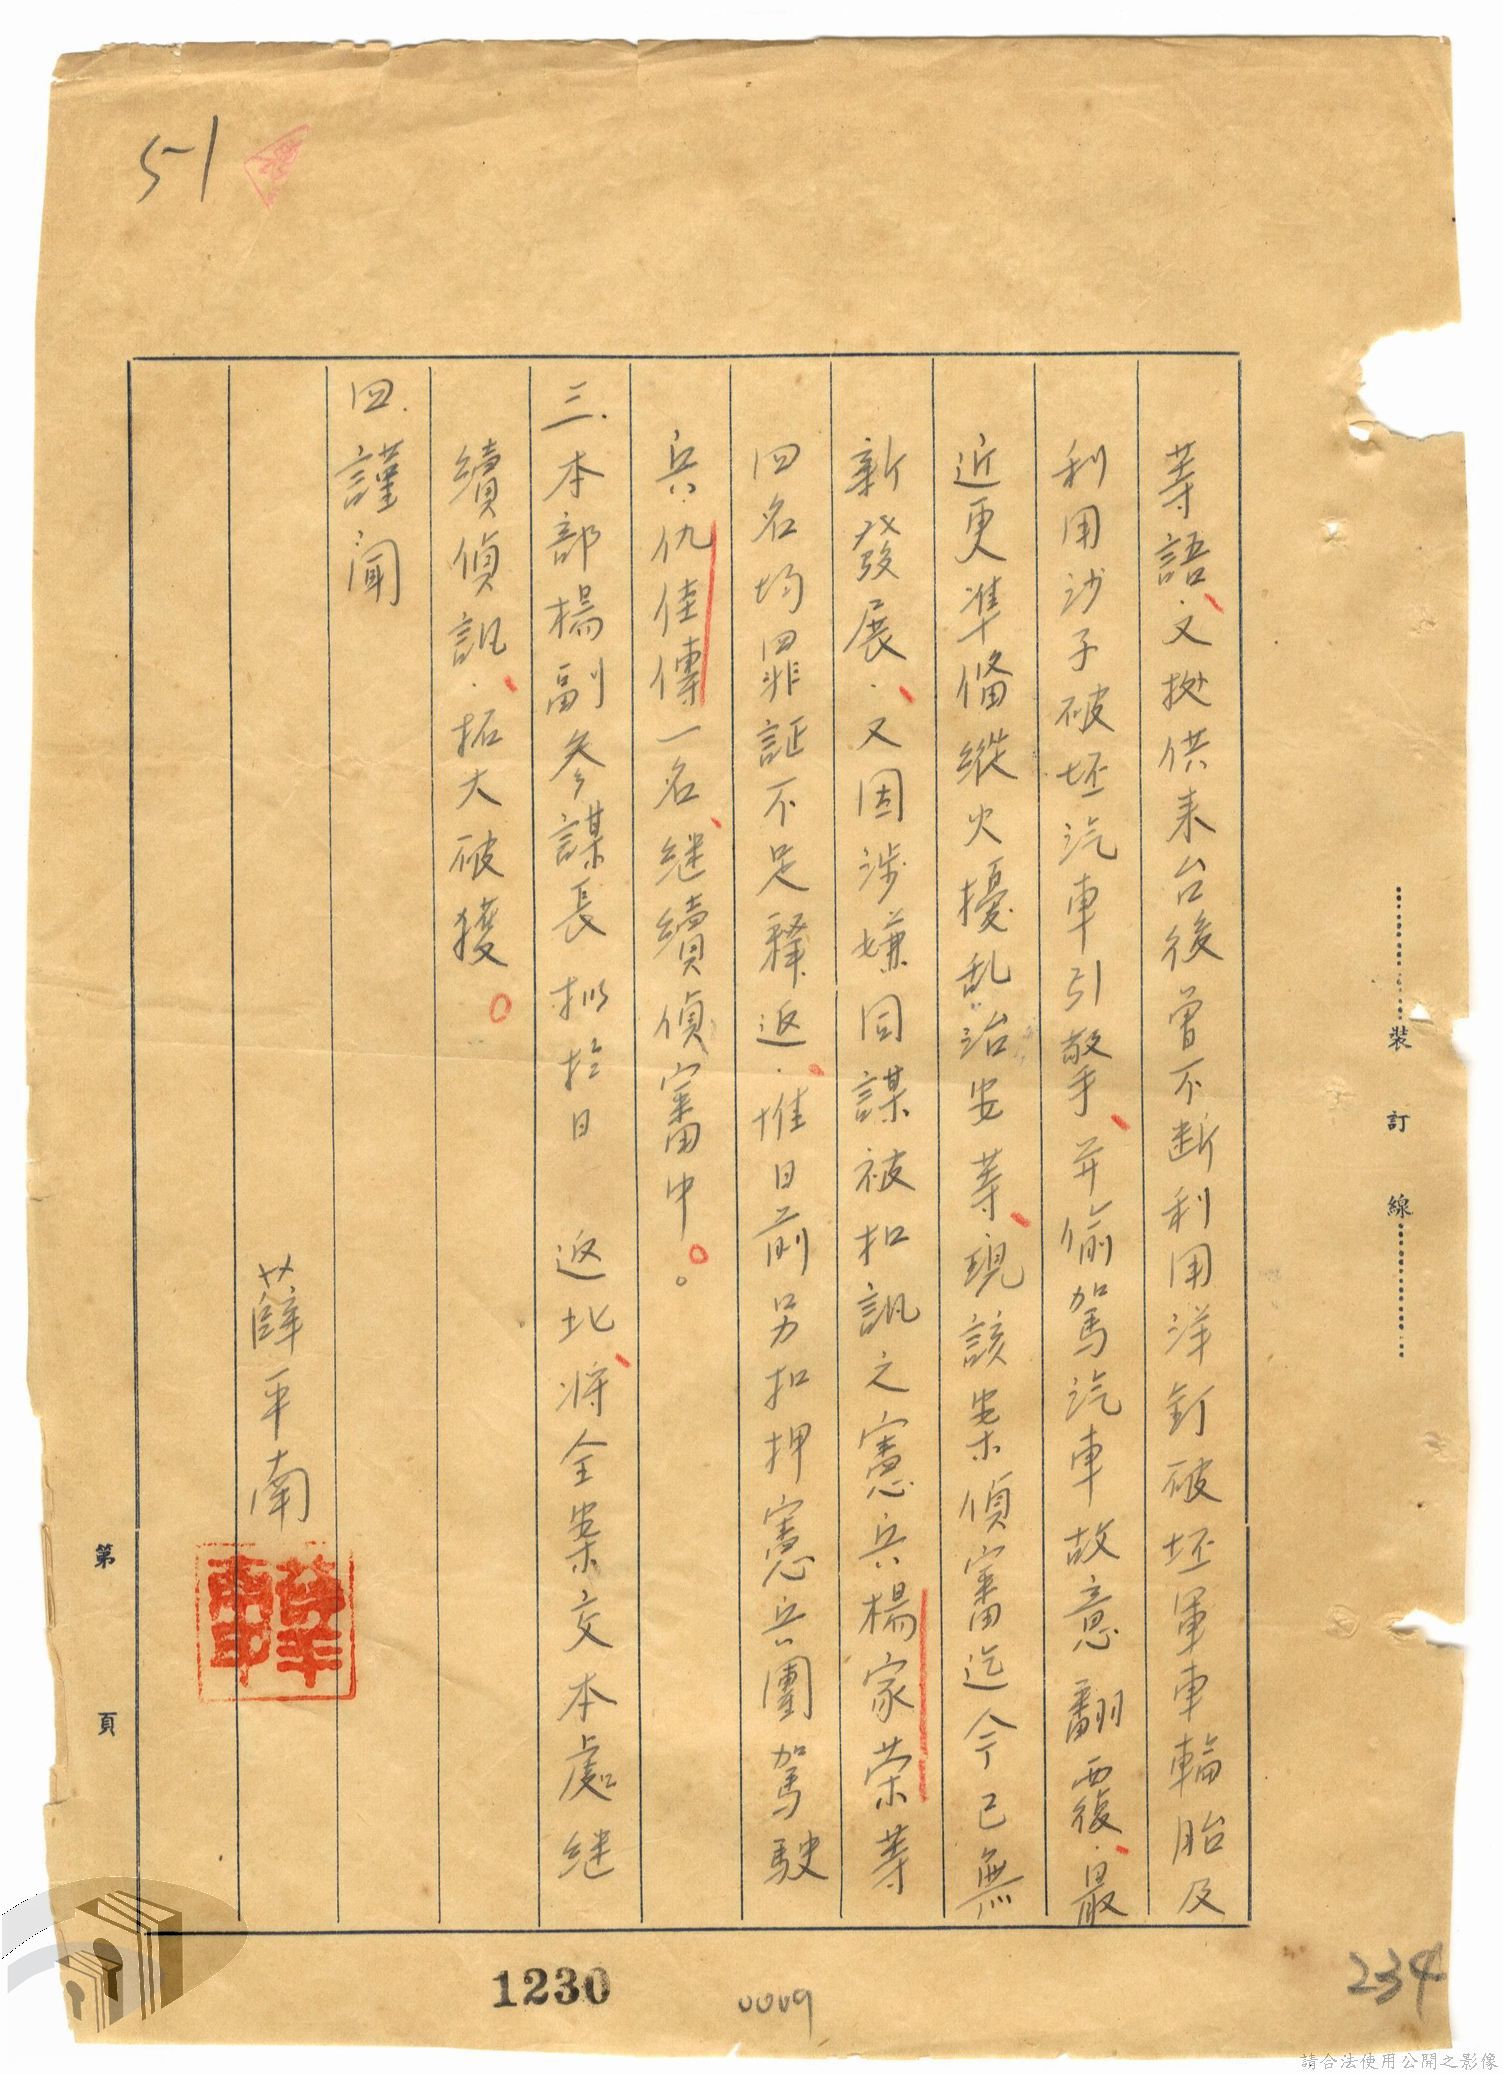 51
等語、又挺供来台後曾不断利用洋釘破坯軍車輪胎及
利用沙子破坯汽車引擎、并偷駕汽車故意翻覆、最
近更準俻縱火擾乱治安等、現該案偵審迄今已無
新發展、又因涉嫌同謀被扣訊之憲兵楊家荣等
四名均罪証不足釋返、惟日前另扣押憲兵團駕駛
兵仇佳傳一名、継續偵審中。
三.本部楊副參謀長拟於日 返北、將全案交本處継
續偵訊、拓大破獲。
四.謹闻
薛平南
薛平南印
裝訂線
第 頁
1230
0009
234
請合法使用公開之影像